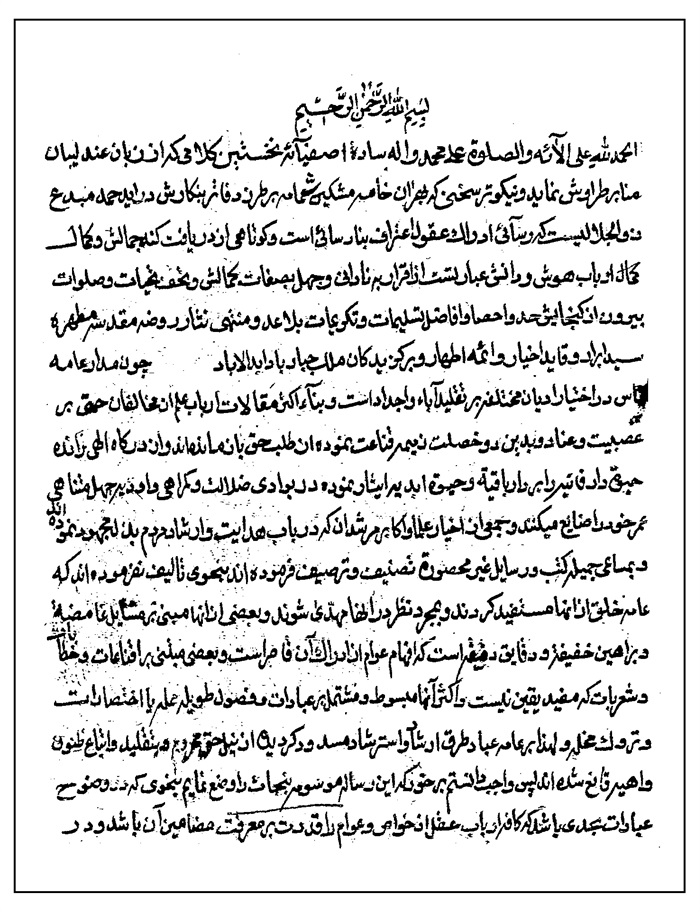 بسم الله الرحمن الرحیم
الحمد لله علی آلائه والصلوة علی محمد و اله سادة اصفیائه نخستین کلامی که از زبان عندلیبان
منابر طراوش نماید و نیکوتر سخنی که جریان خامه مشکین شمامه بر طرز دفاتر نگارش دراید حمد مبدع
ذوالجلالیست که دانائی ادراك عقول اعتراف بنارسائی است و کوتاهی از دریافت کنه جمالش و کمال
کمال ارباب هوش و دانش عبارتست از اقرار به نادانی و جهل بصفات کمالش و تحف تحیات و صلوات
بیرون از گنجایش حد و احصا و افاضل تسلیمات و تکریمات بلا عد و منتهی نثار روضه مقدسه مطهره
سید ابرار و قاید اخیار و ائمه اطهار و برگزیدکان ملك جبار باد ابد الاباد چون مدار عامه
ناس در اختیار ادیان مختلفه بر تقلید آباء و اجداد است و بناء اکثر مقالات ارباب علم از مخالفان حق بر
عصبیت و عناد و بدین دو خصلت ذمیمه قناعت نموده از طلب حق بازمانده‌اند و از درکاه الهی رانده
حیوة دار فانیه را بر دار باقیة و حیوة ابدیه ایثار نموده در بوادی ضلالت و کمراهی و اودیه جهل متناهی
عمر خود را ضایع میکنند و جمعی از اخیار علما و اکابر مرشدان که در باب هدایت و ارشاد مردم بذل مجهود نموده اند
و بمساعی جمیله کتب و رسایل غیر محصورة تصنیف و ترصیف فرموده اند بنحوی تألیف نفرموده اند که
عامه خلق از انها مستفید کردند و بمجرد نظر در انها مهتدی شوند و بعضی از انها مبنی بر مسایل غامضه
و براهین خفیفه و دقایق دقیقه است که افهام عوام از ادراك آن قاصر است و بعضی مبتنی بر اقناعات و خطابیات
و شعریات که مفید یقین نیست و اکثر آنها مبسوط و مشتمل بر عبارات و فصول طویله مله یا اختصارات
و تروك مخله و لهذا بر عامه عباد طرق ارشاد و استرشاد مسدود کردیده از نیل حق محروم و بتقلید و اتباع ظنون
واهیه قانع شده اند پس واجب دانستم بر خود که این رساله موسومه بنجات را وضع نمایم بنحوی که در وضوح
عبارات بحدی باشد که کافه ارباب عقل از خواص و عوام را قدرت بر معرفت مضامین آن باشد و در